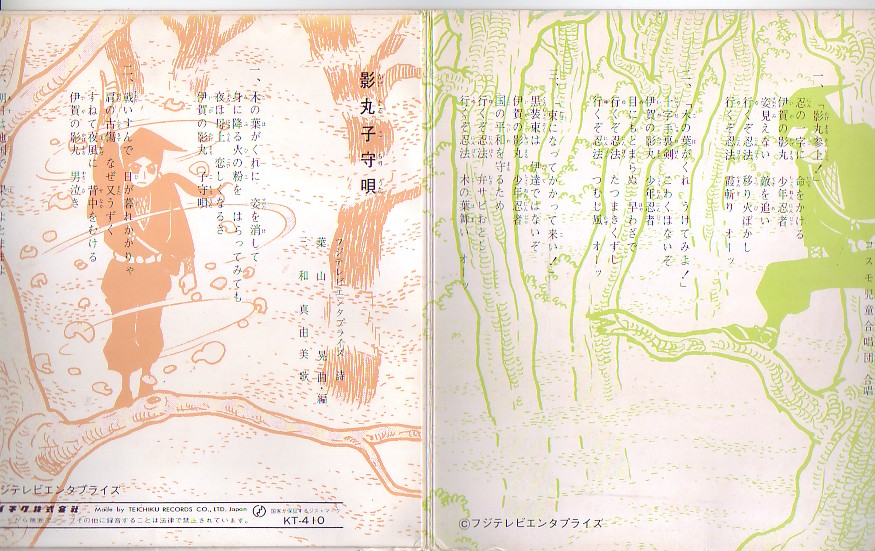 一、「影丸参上！」
忍の一字に 命をかける
伊賀の影丸 少年忍者
姿見えない 敵を追い
行くぞ忍法 移り火ばかし
行くぞ忍法 霞斬り オーッ
二、「木の葉がくれ うけてみよ！」
十字手裏剣 こわくはないぞ
伊賀の影丸 少年忍者
目にもとまらぬ 早わざで
行くぞ忍法 たつまきくずし
行くぞ忍法 つむじ風 オーッ
三、「束になってかかって来い！」
黒装束は 伊達ではないぞ
伊賀の影丸 少年忍者
国の平和を守るため
行くぞ忍法 カサビおとし
行くぞ忍法 木の葉舞い オーッ
コスモ児童合唱団 合唱
©フジテレビエンタプライズ
影丸子守唄
フジテレビエンタプライズ 詩
葉山 晃 曲・編
三和真由美 歌
一、木の葉がくれに 姿を消して
身に降る火の粉を はらってみても
夜は母上 恋しくなるさ
伊賀の影丸 子守唄
二、戦いすんで 日が暮れかかりゃ
肩の古傷 なぜ又うずく
すねて夜風に 背中をむける
伊賀の影丸 男泣き
ジテレビエンタプライズ
イチク株式会社 Made by TEICHIKU RECORDS CO., LTD. Japan
その他に録音することは法律で禁止されています。
KT-410